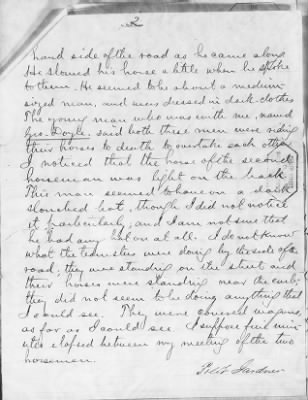 2
hand side of the road as he came along
He slowed his horse a little when he spoke
to them. He seemed to be about a medium
sized man, and was dressed in dark clothes
The young man who was with me, named
Geo. Doyle, said both these men were riding
their horses to death to overtake each other
I noticed that the horse of the second
horseman was light on the back.
This man seemed to have on a dark
slouched hat, though I did not notice
it particularly, and I am not sure that
he had any hat on at all. I do not know
what the teamsters were doing by the side of the
road, they were standing on the street and
their horses were standing near the curb,
they did not seem to be doing anything that
I could see. They were covered wagons,
as far as I could see. I suppose five min-
utes elapsed between my meeting of the two
horsemen.
Polk Gardner